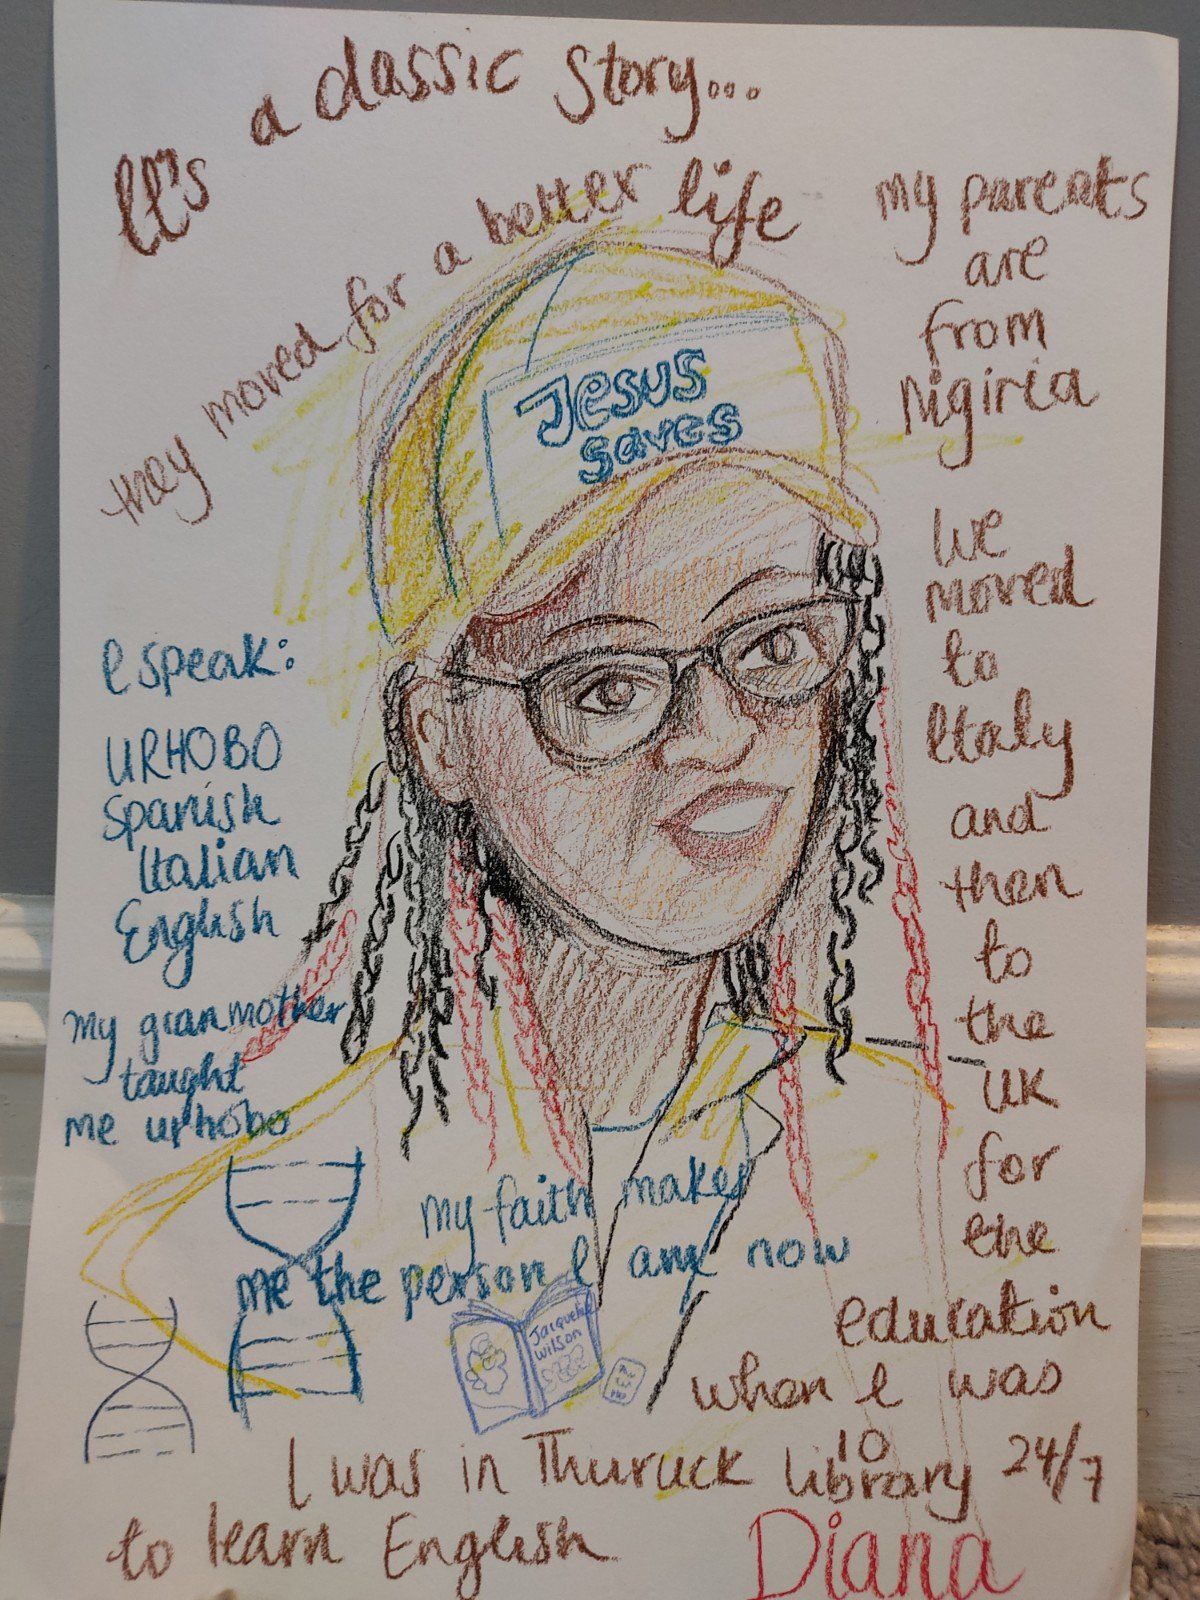 It's a classic story...
they moved for a better life
my parents
are
from
Nigiria
we
moved
to
Italy
and
then
to
the
UK
for
the
education
when I was
10
Jesus
saves
I speak:
URHOBO
Spanish
Italian
English
my granmother
taught
me urhobo
my faith makes
me the person I am now
Jacqueline
Wilson
I was in Thuruck library 24/7
to learn English
Diana